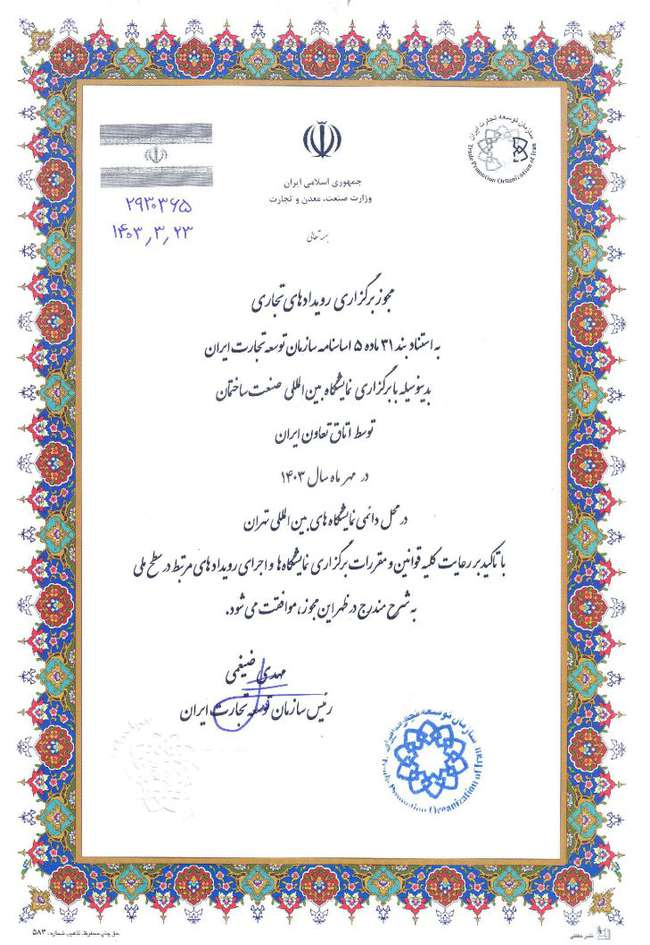 سازمان توسعه تجارت ایران
Trade Promotion Organization of Iran
جمهوری اسلامی ایران
وزارت صنعت، معدن و تجارت
۲۹۳۰۳۶۵
۱۴۰۳٫۳٫۲۳
بسمه تعالی
مجوز برگزاری رویدادهای تجاری
به استناد بند ۳۱ ماده ۵ اساسنامه سازمان توسعه تجارت ایران
بدینوسیله با برگزاری نمایشگاه بین المللی صنعت ساختمان
توسط اتاق تعاون ایران
در مهر ماه سال ۱۴۰۳
در محل دائمی نمایشگاه های بین المللی تهران
با تاکید بر رعایت کلیه قوانین و مقررات برگزاری نمایشگاه ها و اجرای رویدادهای مرتبط در سطح ملی
به شرح مندرج در ظهر این مجوز، موافقت می شود.
مهدی ضیغمی
رئیس سازمان توسعه تجارت ایران
سازمان توسعه تجارت ایران
Trade Promotion Organization of Iran
حق چاپ محفوظ، تذهیب شماره: ۵۸۳